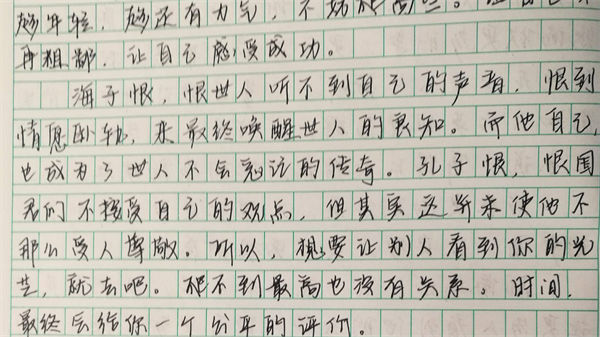 趁年轻,趁还有力气,不妨
再粗鄙,让自己感受成功。
海子恨,恨世人听不到自己的声音,恨到
情愿卧轨,来最终唤醒世人的良知。而他自己,
也成为了世人不会忘记的传奇。孔子恨,恨国
君们不接受自己的观点,但其实这并未使他不
那么受人尊敬。所以,想要让别人看到你的光
芒,就去吧。恨不到最高也没有关系。时间,
最终会给你一个公平的评价。